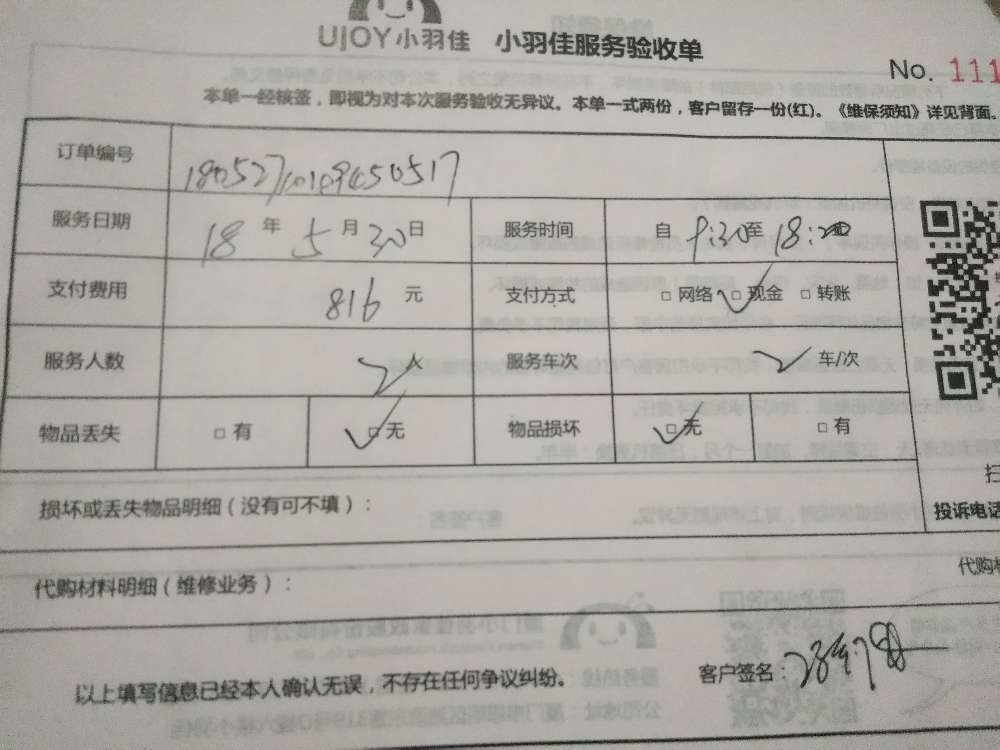 UJOY小羽佳 小羽佳服务验收单
No. 111
本单一经核签，即视为对本次服务验收无异议。本单一式两份，客户留存一份(红)。《维保须知》详见背面。
订单编号
服务日期 18 年 5 月 30 日 服务时间 自 9:30 至 18:00
支付费用 816 元 支付方式 □ 网络 □ 现金 □ 转账
服务人数 2 人 服务车次 2 车/次
物品丢失 □ 有 □ 无 物品损坏 □ 无 □ 有
扫
损坏或丢失物品明细（没有可不填）：
投诉电话
代购材料明细（维修业务）：
代购材
以上填写信息已经本人确认无误，不存在任何争议纠纷。 客户签名：